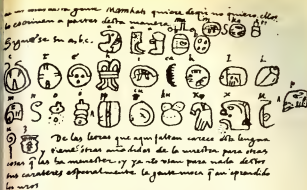 Mamkati quiere dezir no quiero ellos
lo escriven a partes desta manera
Siguese su a, b, c.
De las letras que aqui faltan carece esta lengua
y tiene otras añadidas de la nuestra para otras
cosas q las ha menester, y ya no usan para nada destos
sus carateres especialmente la gente moça q an aprendido
los nros